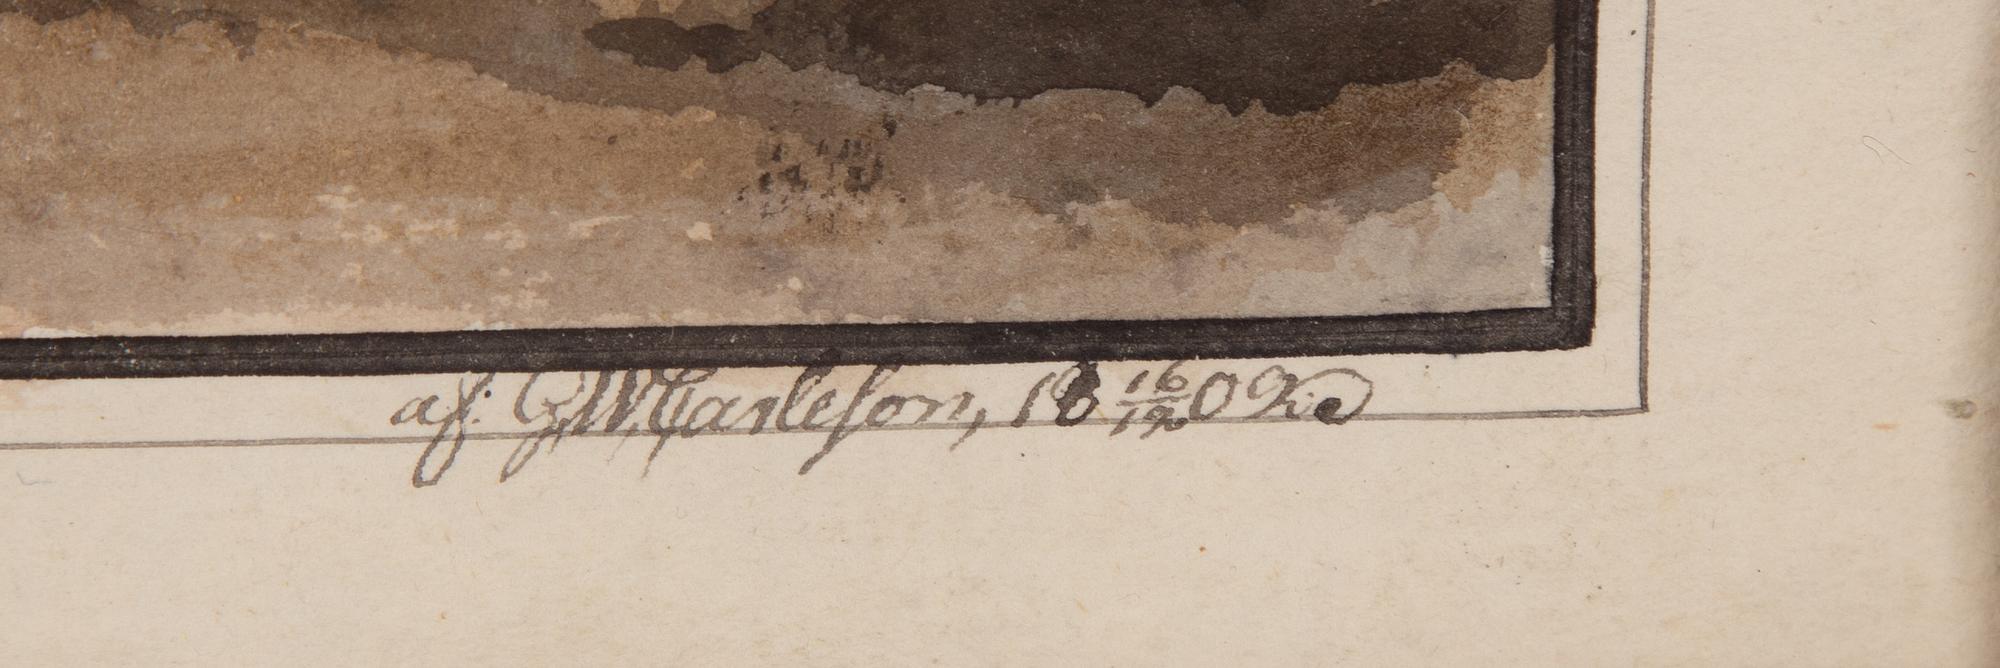 af. G W Carleson, 18 16/12 02